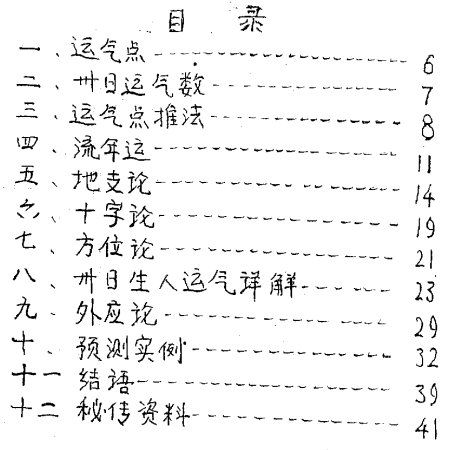 目 录
一、运气点 6
二、卅日运气数 7
三、运气点推法 8
四、流年运 11
五、地支论 14
六、十字论 19
七、方位论 21
八、卅日生人运气详解 23
九、外应论 29
十、预测实例 32
十一 结语 39
十二 秘传资料 41